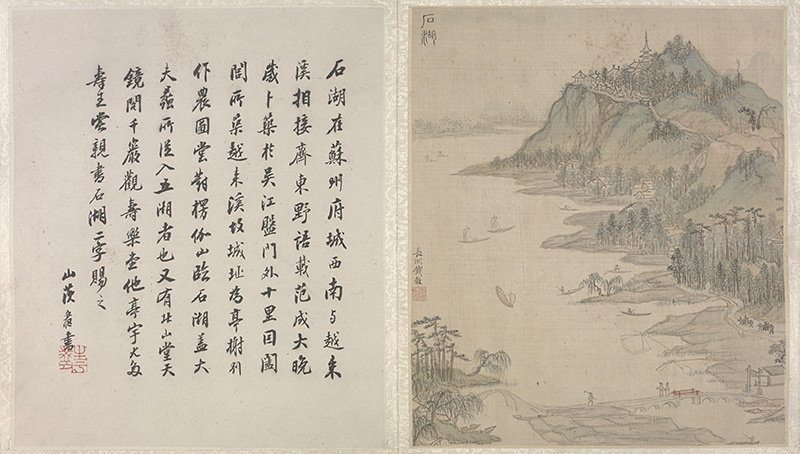 石湖
石湖在蘇州府城西南与越来
溪相接齊東野語載范成大晚
歲卜築於吳江盤門外十里因闔
閭所築越来溪故城址為亭榭別
作農圃堂對楞伽山臨石湖蓋大
夫蠡所從入五湖者也又有北山堂天
鏡閣千巖觀壽樂堂他亭宇尤多
壽皇嘗親書石湖二字賜之
山茨書
長洲